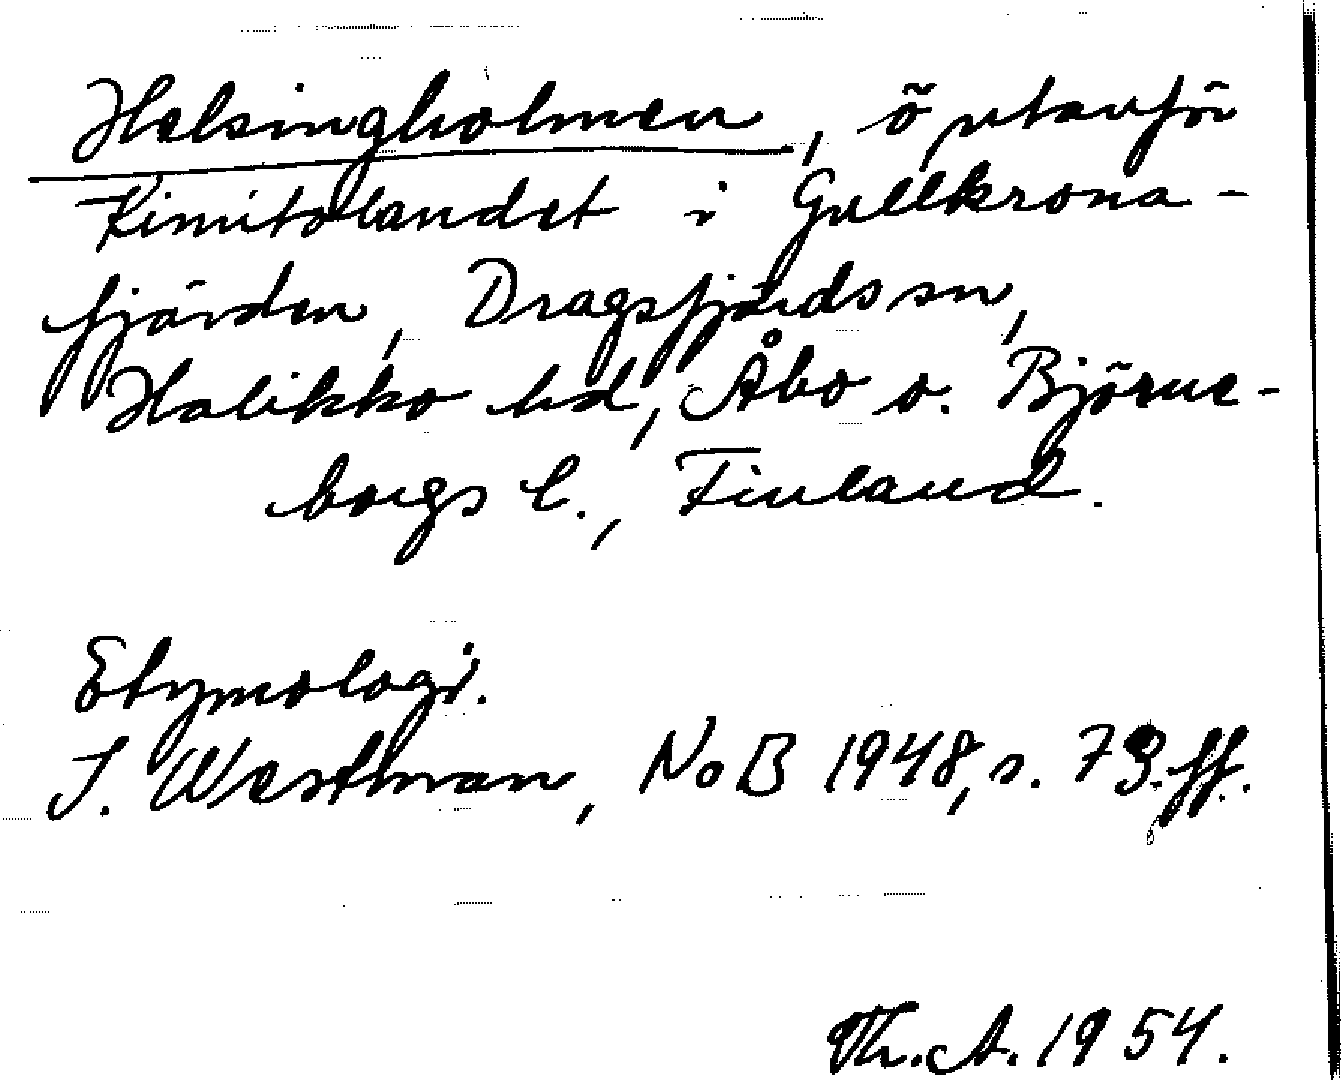 Helsingholmen, ö utanför
Kimitolandet i Gullkrona-
fjärden, Dragsfjärds sn,
Halikko hd, Åbo o. Björne-
borgs l., Finland.
Etymologi.
I. Westman, NoB 1948, s. 73 ff.
Th. A. 1954.